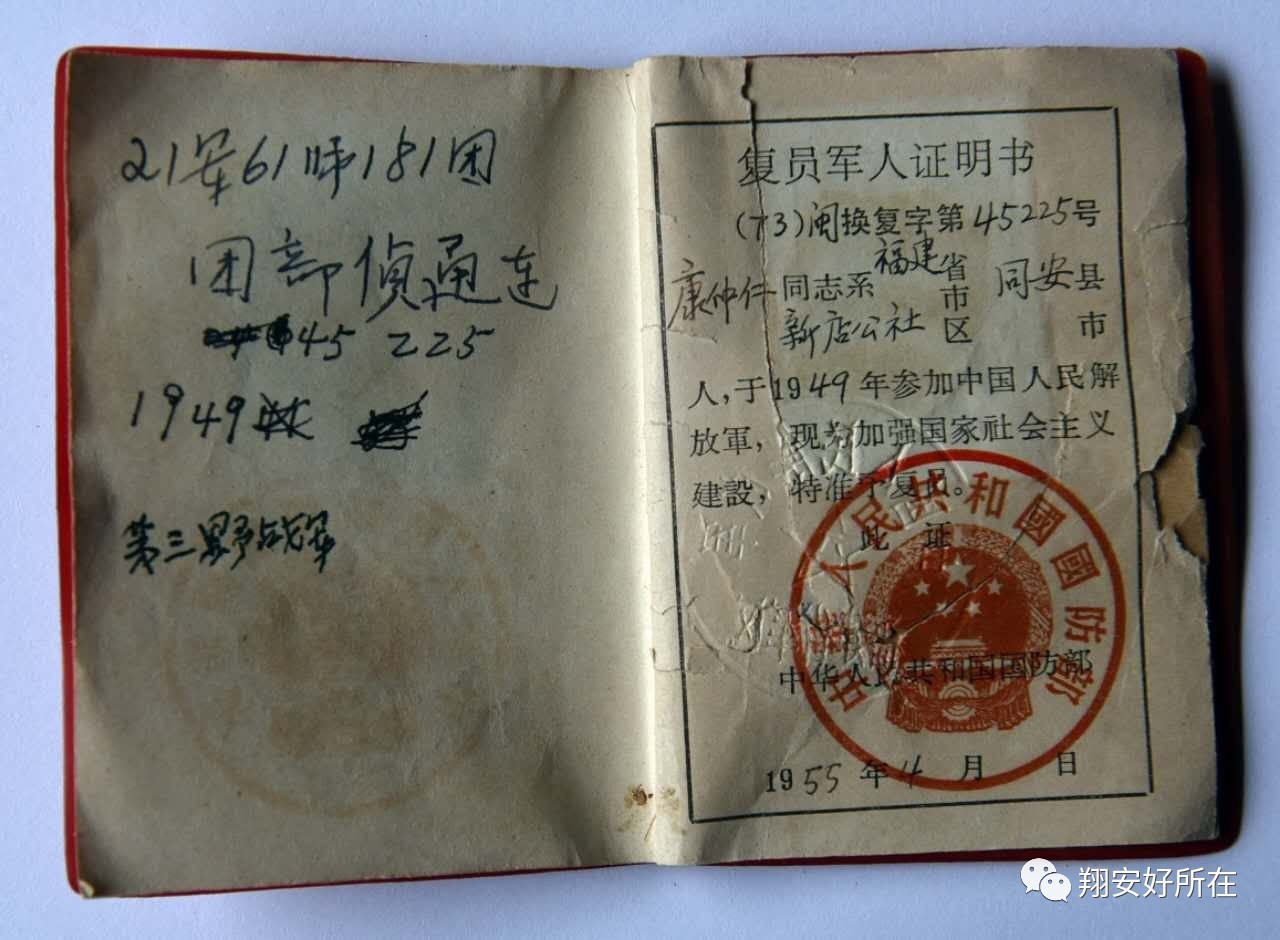 21军61师181团
团部侦通连
45 225
1949
第三野战军
复员军人证明书
(73)闽换复字第45225号
康仲仁同志系福建省市区同安县市
新店公社
人,于1949年参加中国人民解
放軍,现为加强国家社会主义
建設,特准予复员。
此证
中华人民共和国国防部
中华人民共和國國防部
1955年4月 日
翔安好所在